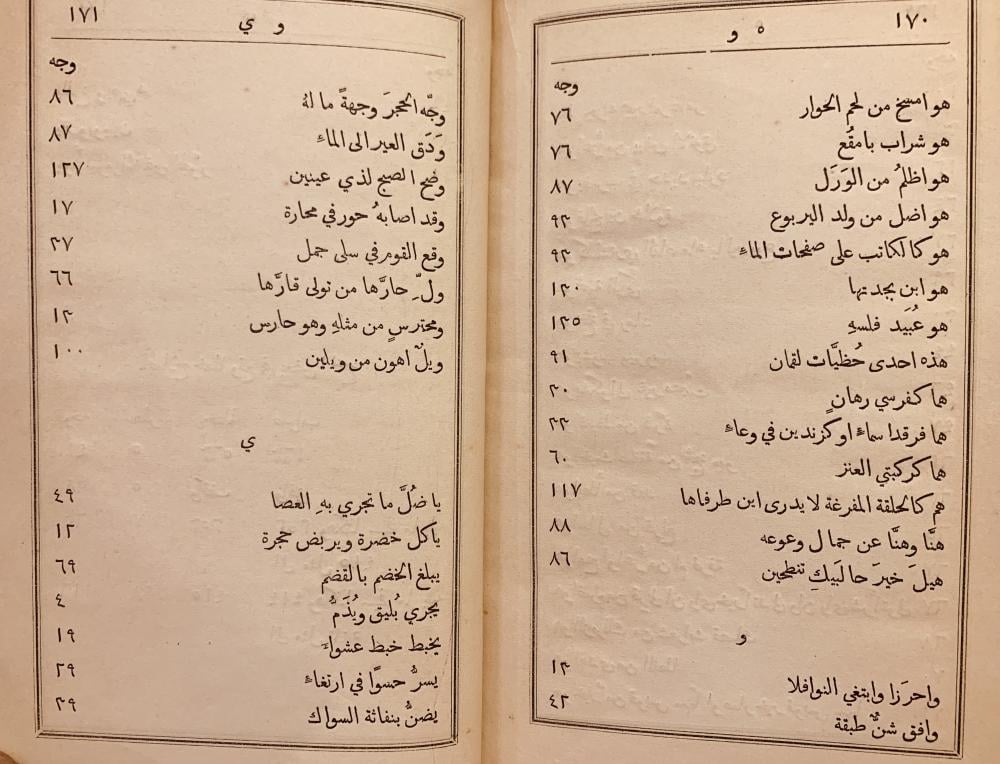 ١٧٠
ه و
وجه
هو امسخ من لحم الحوار ٧٦
هو شراب بامقُع ٧٦
هو اظلمُ من الوَرَل ٨٧
هو اضل من ولد اليربوع ٩٣
هو كالكاتب على صفحات الماءِ ٩٣
هو ابن بجدتها ١٣٠
هو عُبَيد فلسهِ ١٣٥
هذه احدى حُظَيَّات لقمان ٩١
هما كفرسي رهانٍ ٣٠
هما فرقدا سماءٍ اوكزندين في وعاءٍ ٣٣
هما كركبتي العنز ٦٠
هم كالحلقة المفرغة لا يدرى اين طرفاها ١١٧
هنَّا وهنَّا عن جمال وعوعه ٨٨
هيلَ خيرَ حالبَيكِ تنطحين ٨٦
و
واحرَزا وابتغي النوافلا ١٣
وافق شنٌّ طبقة ٤٢
١٧١
و ي
وجه
وجّه الحجرَ وجهةً ما لهُ ٨٦
وَدَق العير الى الماءِ ٨٧
وضح الصبح لذي عينين ١٢٧
وقد اصابهُ حور في محارة ١٧
وقع القوم في سلى جمل ٣٧
ولِّ حارَّها من تولى قارَّها ٦٦
ومحترسٍ من مثلهِ وهو حارس ١٣
ويلٌ اهون من ويلين ١٠٠
ي
يا ضُلَّ ما تجري بهِ العصا ٤٩
ياكل خضرة ويربض حجرة ١٢
يبلغ الخضم بالقضم ٦٩
يجري بُليق ويُذَمُّ ٤
يخبط خبط عشواءَ ١٩
يسرُّ حسوًا في ارتغاءٍ ٢٩
يضنُّ بنفاثة السواك ٣٩